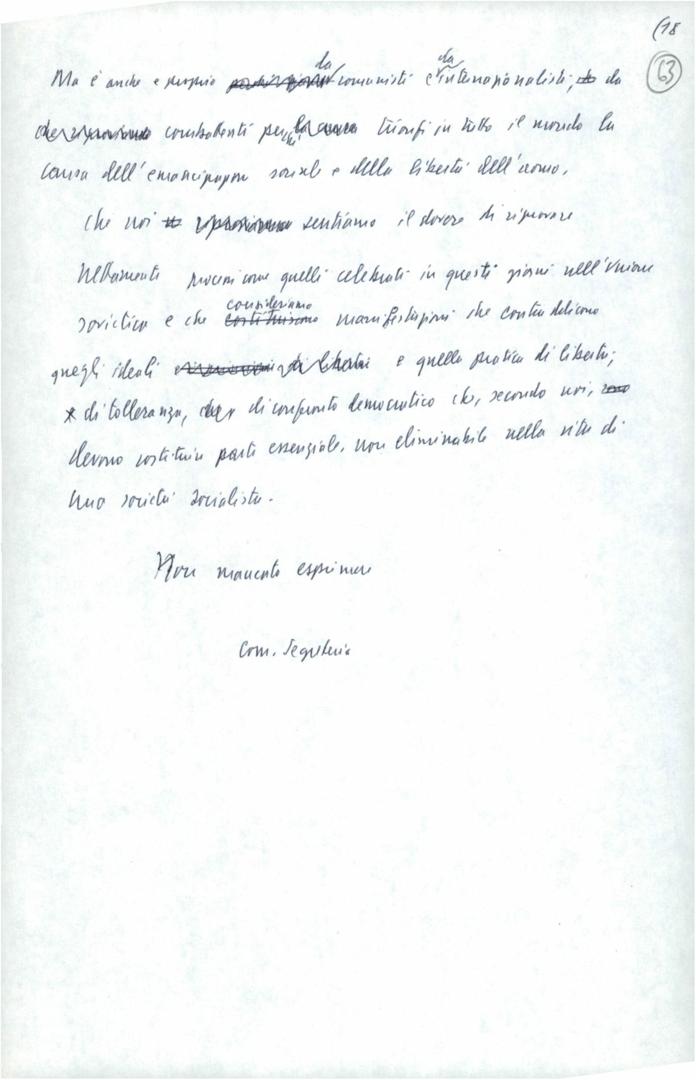 (18
63
Ma è anche e proprio da comunisti e da internazionalisti, da
combattenti perché trionfi in tutto il mondo la
causa dell'emancipazione sociale e della libertà dell'uomo,
che noi sentiamo il dovere di riprovare
nettamente processi come quelli celebrati in questi giorni nell'Unione
sovietica e che consideriamo manifestazioni che contraddicono
quegli ideali e quella pratica di libertà,
di tolleranza, di confronto democratico che, secondo noi,
devono costituire parte essenziale, non eliminabile nella vita di
una società socialista.
Non mancato esprimere
Com. Segreteria